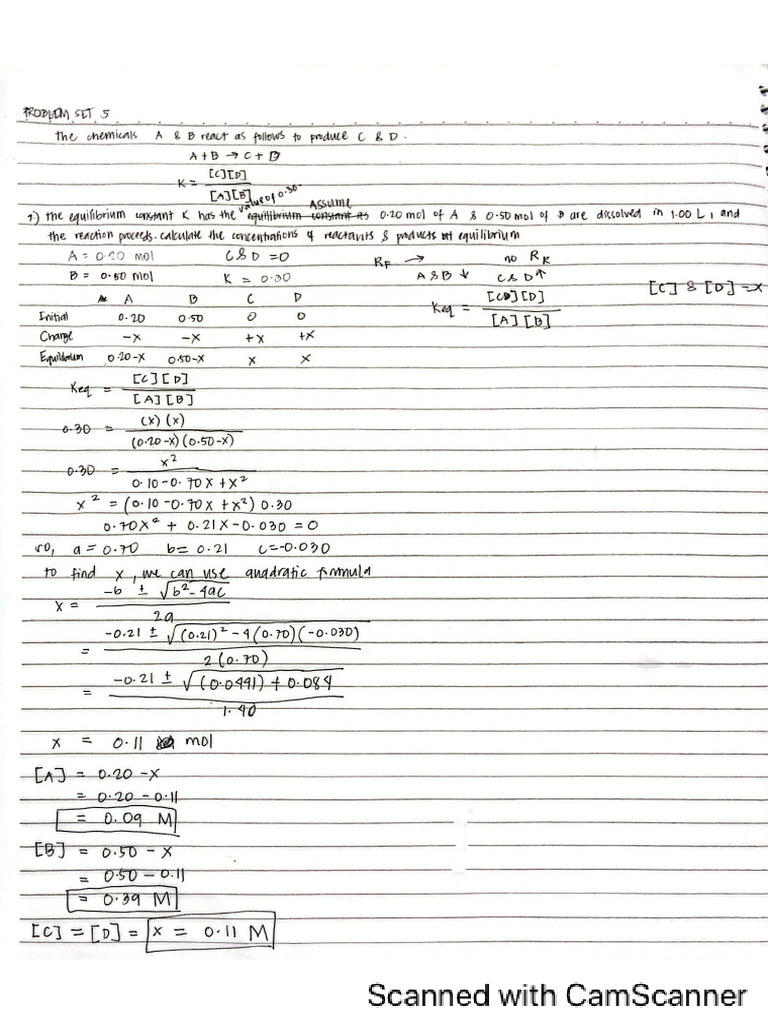 PROBLEM SET 5
The chemicals A & B react as follows to produce C & D.
A + B → C + D
K = [C][D] / [A][B]
value of 0.30. Assume
1.) the equilibrium constant K has the equilibrium constant as 0.20 mol of A & 0.50 mol of B are dissolved in 1.00 L, and
the reaction proceeds. calculate the concentrations of reactants & products at equilibrium
A = 0.20 mol C & D = 0 RF → no RR
B = 0.50 mol K = 0.30 A & B ↓ C & D ↑ [C] & [D] = x
A B C D Keq = [CD][D] / [A][B]
Initial 0.20 0.50 0 0
Change -x -x +x +x
Equilibrium 0.20-x 0.50-x x x
Keq = [C][D] / [A][B]
0.30 = (x)(x) / (0.20-x)(0.50-x)
0.30 = x² / 0.10-0.70x+x²
x² = (0.10-0.70x+x²) 0.30
0.70x² + 0.21x-0.030 = 0
so, a = 0.70 b = 0.21 c = -0.030
to find x, we can use quadratic formula
x = -b ± √b²-4ac / 2a
= -0.21 ± √(0.21)²-4(0.70)(-0.030) / 2(0.70)
= -0.21 ± √(0.0441) + 0.084 / 1.40
x = 0.11 mol
[A] = 0.20 - x
= 0.20 - 0.11
= 0.09 M
[B] = 0.50 - x
= 0.50 - 0.11
= 0.39 M
[C] = [D] = x = 0.11 M
Scanned with CamScanner